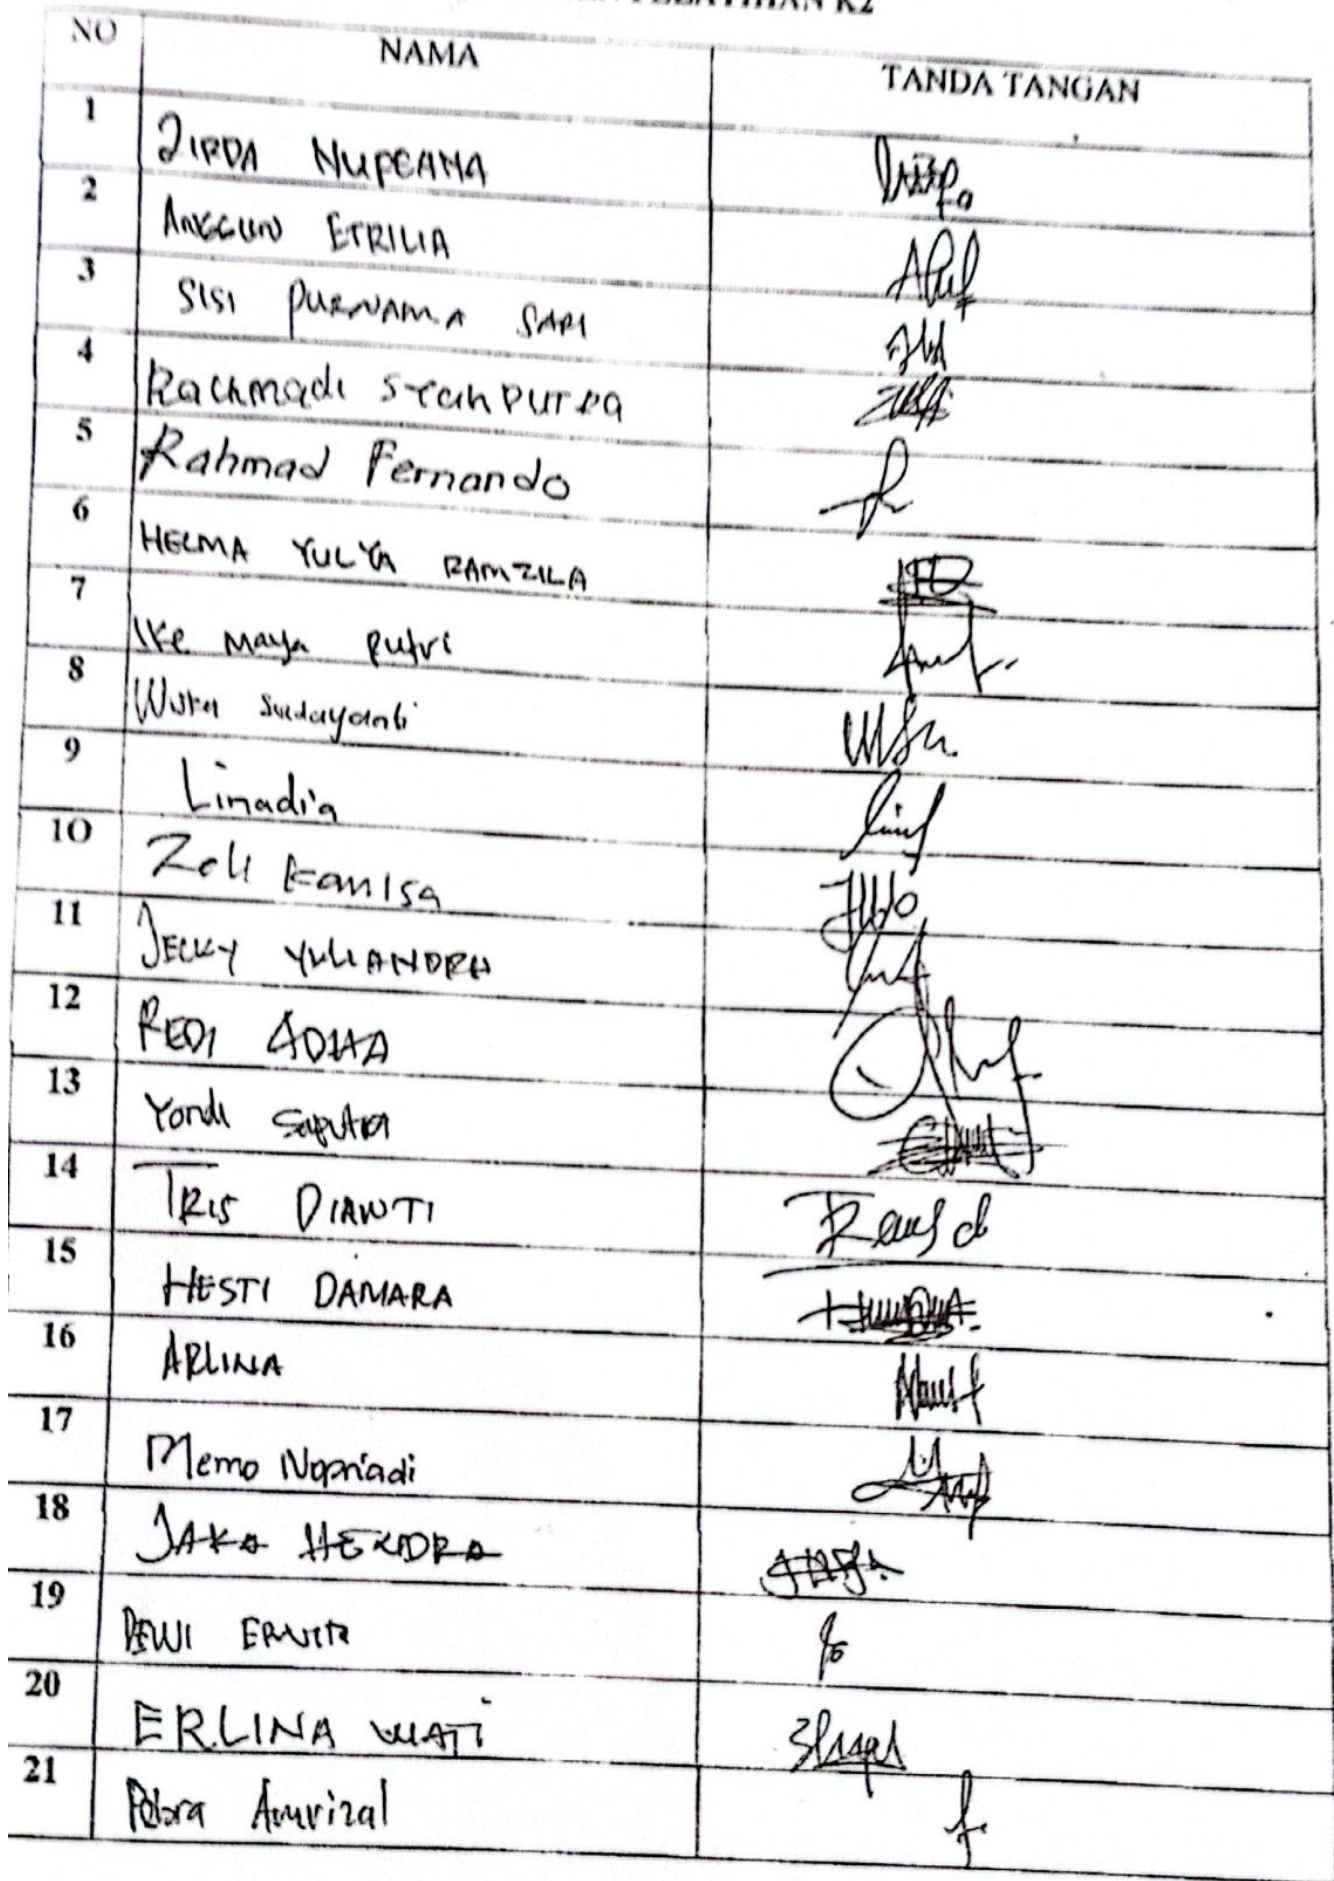 PELATIHAN K2
NO NAMA TANDA TANGAN
1 ZIRDA NUREANA
2 ANGGUN ETRILIA
3 SISI PURNAMA SARI
4 Rachmadi Syahputra
5 Rahmad Fernando
6 HELMA YULYA RAMZILA
7 Ike Maya Putri
8 Wura Sudayanti
9 Linadia
10 Zeli Kamisa
11 JECKY YULIANDRA
12 REDI ADHA
13 Yondi Saputra
14 TRIS DIANTI
15 HESTI DAMARA
16 ARLINA
17 Memo Nopriadi
18 JAKA HENDRA
19 DEWI ERNITA
20 ERLINA WATI
21 Amrizal